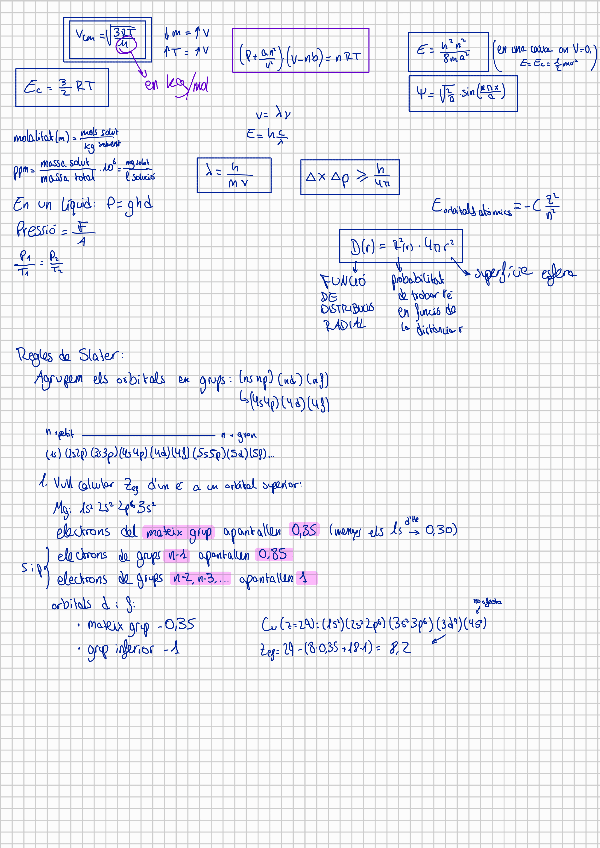 Vcm = √(3RT/M)
↓m = ↑V
↑T = ↑V
en kg/mol
(P + an²/v²)·(V-nb) = nRT
E = h²n²/8ma²
(en una caixa on V=0, E = Ec = ½mv²)
Ec = 3/2 RT
Ψ = √(2/a) · sin(nπx/a)
v = λν
E = h c/λ
molalitat (m) = mols solut/kg solvent
ppm = massa solut/massa total · 10⁶ = mg solut/l solució
λ = h/mv
Δx Δp ≥ h/4π
En un líquid: P = ghd
Pressió = F/A
P₁/T₁ = P₂/T₂
E orbitals atòmics = -C Z²/n²
D(r) = R²(r) · 4πr²
superfície esfera
FUNCIÓ DE DISTRIBUCIÓ RADIAL
probabilitat de trobar l'e⁻ en funció de la distància r
Regles de Slater:
Agrupem els orbitals en grups: (ns np) (nd) (nf)
↳ (4s4p) (4d) (4f)
n + petit ———— n + gran
(1s) (2s2p) (3s3p) (4s4p) (4d) (4f) (5s5p) (5d) (5f)...
1. Vull calcular Zef d'un e⁻ a un orbital superior:
Mg: 1s² 2s² 2p⁶ 3s²
electrons del mateix grup apantallen 0,35 (menys els 1s → 0,30)
s i p { electrons de grups n-1 apantallen 0,85
electrons de grups n-2, n-3,... apantallen 1
orbitals d i f:
· mateix grup - 0,35
· grup inferior - 1
no afecta
Cu (z=29): (1s²) (2s² 2p⁶) (3s² 3p⁶) (3d⁹) (4s²)
Zef = 29 - (8·0,35 + 18·1) = 8,2